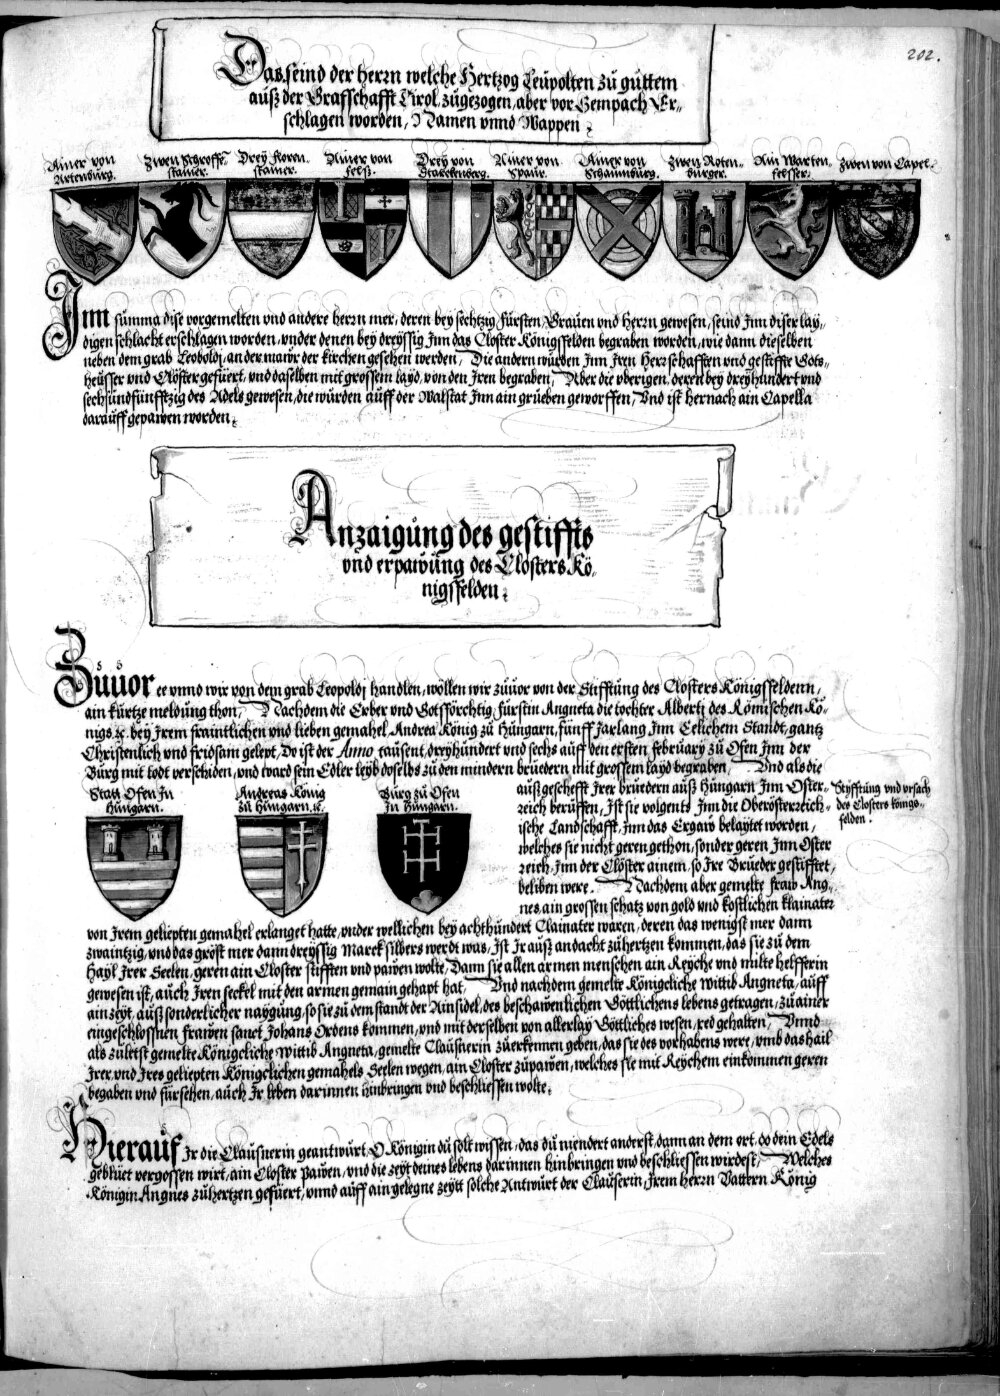 202.
Das seind der herrn welche Hertzog Leupolten zu guttem
auß der Graffschafft Tirol zugezogen, aber vor Sempach Er-
schlagen worden, Namen vnnd Wappen.
Ainer von Artenburg.
Zwen Schroffenstainer.
Drey Floren-
stainer.
Ainer von
Felß.
Drey von
Starckenberg.
Ainer von
Spaur.
Ainer von
Schaumburg.
Zwen Roten-
burger.
Ain Warten-
felsser.
Zwen von Capel.
Inn summa dise vorgemelten vnd andere herrn mer, deren bey sechtzig Fürsten, Grauen vnd herrn gewesen, seind Inn diser lay-
digen schlacht erschlagen worden, vnder denen bey dreyssig Inn das Closter Königsfelden begraben worden, wie dann dieselben
neben dem grab Leopoldj, an der maur der kirchen gesehen werden, Die andern wurden Inn Iren Herrschafften vnd gestiffte Gots-
heusser vnd Clöster gefuert, vnd daselben mit grossem layd, von den Iren begraben, Aber die vberigen, deren bey dreyhundert vnd
sechsundfünfftzig des Adels gewesen, die wurden auff der Walstat Inn ain grueben geworffen, Vnd ist hernach ain Capella
darauff gepawen worden.
Anzaigung des gestiffts
vnd erpawung des Closters Kö-
nigsfelden.
Zuuor ee vnnd wir von dem grab Leopoldj handlen, wöllen wir zuuor von der Stifftung des Closters Königsfeldenn,
ain kurtze meldung thon, Nachdem die Erber vnd Gotsförchtig Fürstin Angneta die tochter Albertj des Römischen Kö-
nigs ꝛc. bey Irem frainntlichen vnd lieben gemahel Andrea König zu Hungarn, fünff Jarlang Inn Eelichem Standt, gantz
Christenlich vnd fridsam gelept, Do ist der Anno tausent, dreyhundert vnd sechs auff den ersten february zu Ofen Inn der
Burg mit todt verschiden, vnd ward sein Edler leyb doselbs zu den mindern bruedern mit grossem layd begraben, Vnd als die
Statt Ofen In
Hungarn.
Andreas König
zu Hungarn, ꝛc.
Burg zu Ofen
In Hungarn.
auß geschefft Irer bruedern auß Hungarn Inn Oster-
reich berüffen, Ist sie volgents Inn die Oberösterreich-
ische Landschafft, Inn das Ergaw belaytet worden,
welches sie nicht geren gethon, sonder geren Inn Oster
reich, Inn der Clöster ainem, so Ire Brueder gestifftet,
beliben were. Nachdem aber gemelte fraw Ang-
nes, ain grossen schatz von gold vnd kostlichen klainater
Styfftung vnd vrsach
des Closters königs-
felden.
von Irem geliepten gemahel erlanget hatte, vnder wellichen bey achthundert Clainater waren, deren das wenigst mer dann
zwaintzig, vnd das gröst mer dann dreyssig Marck silbers werdt was, Ist Ir auß andacht zuhertzen kommen, das sie zu dem
hayl Irer Seelen, geren ain Closter stifften vnd pawen wolte, Dann sie allen armen menschen ain Reyche vnd milte helfferin
gewesen ist, auch Iren seckel mit den armen gemain gehapt hat, Vnd nachdem gemelte Königcliche Wittib Angneta, auff
ain zeyt, auß sonderlicher naygung, so sie zu dem standt der Ainsidel, des beschawenlichen Göttlichens lebens getragen, zu ainer
eingeschlossnen frawen sanct Johans Ordens kommen, vnd mit derselben von allerlay Göttliches wesen, red gehalten, Vnnd
als zuletst gemelte Königcliche Wittib Angneta, gemelte Clausnerin zuerkennen geben, das sie des vorhabens were, vmb das hail
Irer, vnd Ires geliepten Königclichen gemahels Seelen wegen, ain Closter zupawen, welches sie mit Reychem einkommen geren
begaben vnd fürsehen, auch Ir leben darinnen hinbringen vnd beschliessen wolte.
Hierauff Ir die Clausnerin geantwurt, O Königin du solt wissen, das du niendert anderst, dann an dem ort, do dein Edels
geblüet vergossen wirt, ain Closter pawen, vnd die zeyt deines lebens darinnen hinbringen vnd beschliessen wirdest, Welches
Königin Angnes zuhertzen gefuert, vnnd auff ain gelegne zeytt solche Antwurt der Clauserin, Irem herrn Vattern König